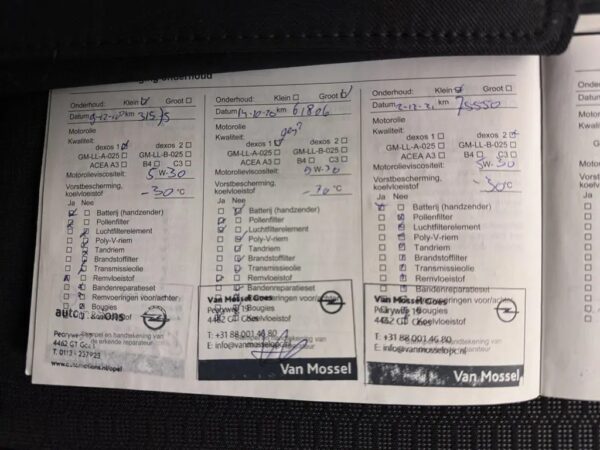 onderhoud
Onderhoud: Klein Groot
Datum km 31575
Motorolie
Kwaliteit:
dexos 1 dexos 2
GM-LL-A-025 GM-LL-B-025
ACEA A3 B4 C3
Motorolieviscositeit:
5W-30
Vorstbescherming,
koelvloeistof
-30 °C
Ja Nee
Batterij (handzender)
Pollenfilter
Luchtfilterelement
Poly-V-riem
Tandriem
Brandstoffilter
Transmissieolie
Remvloeistof
Bandenreparatieset
Remvoeringen voor/achter
Bougies
Koelvloeistof
4462 GT Goes
Stempel en handtekening van
de erkende reparateur
T. 0113 - 237923
www.automotions.nl/opel
Onderhoud: Klein Groot
Datum 14-10-20 km 61806
Motorolie
Kwaliteit:
dexos 1 dexos 2
GM-LL-A-025 GM-LL-B-025
ACEA A3 B4 C3
Motorolieviscositeit:
W-30
Vorstbescherming,
koelvloeistof
°C
Ja Nee
Batterij (handzender)
Pollenfilter
Luchtfilterelement
Poly-V-riem
Tandriem
Brandstoffilter
Transmissieolie
Remvloeistof
Bandenreparatieset
Remvoeringen voor/achter
Van Mossel Goes
Bougies
4462 GT Goes
Koelvloeistof
T: +31 88 001 46 80
E: info@vanmosselopc.nl
Van Mossel
Onderhoud: Klein Groot
Datum 2-12-21 km 75550
Motorolie
Kwaliteit:
dexos 1 dexos 2
GM-LL-A-025 GM-LL-B-025
ACEA A3 B4 C3
Motorolieviscositeit:
5W-30
Vorstbescherming,
koelvloeistof
-30 °C
Ja Nee
Batterij (handzender)
Pollenfilter
Luchtfilterelement
Poly-V-riem
Tandriem
Brandstoffilter
Transmissieolie
Remvloeistof
Bandenreparatieset
Remvoeringen voor/achter
Van Mossel Goes
Bougies
4462 GT Goes
Koelvloeistof
T: +31 88 001 46 80
E: info@vanmosselopc.nl
Van Mossel